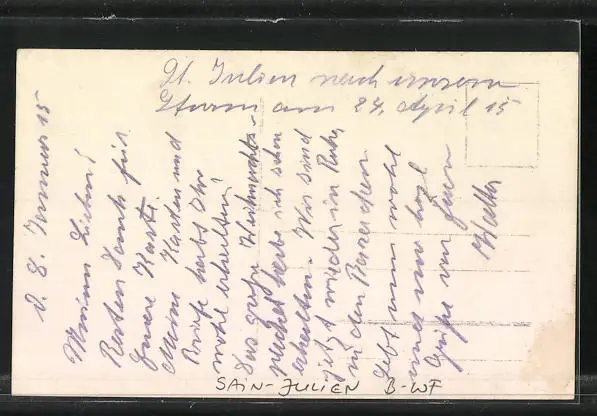 St. Julien nach unserm
Sturm am 24. April 15
d. 8. Januar 15
Meine Lieben!
Besten Dank für
Euere Karte.
Meine Karten und
Briefe habt Ihr
wohl erhalten?
Das große Weihnachts-
habe ich schon
erhalten. Wir sind
jetzt wieder in Ruhe
in den Baracken.
Lebt nun wohl
und nun herzl.
Grüße von Euer
Walter
SAIN-JULIEN B-WF